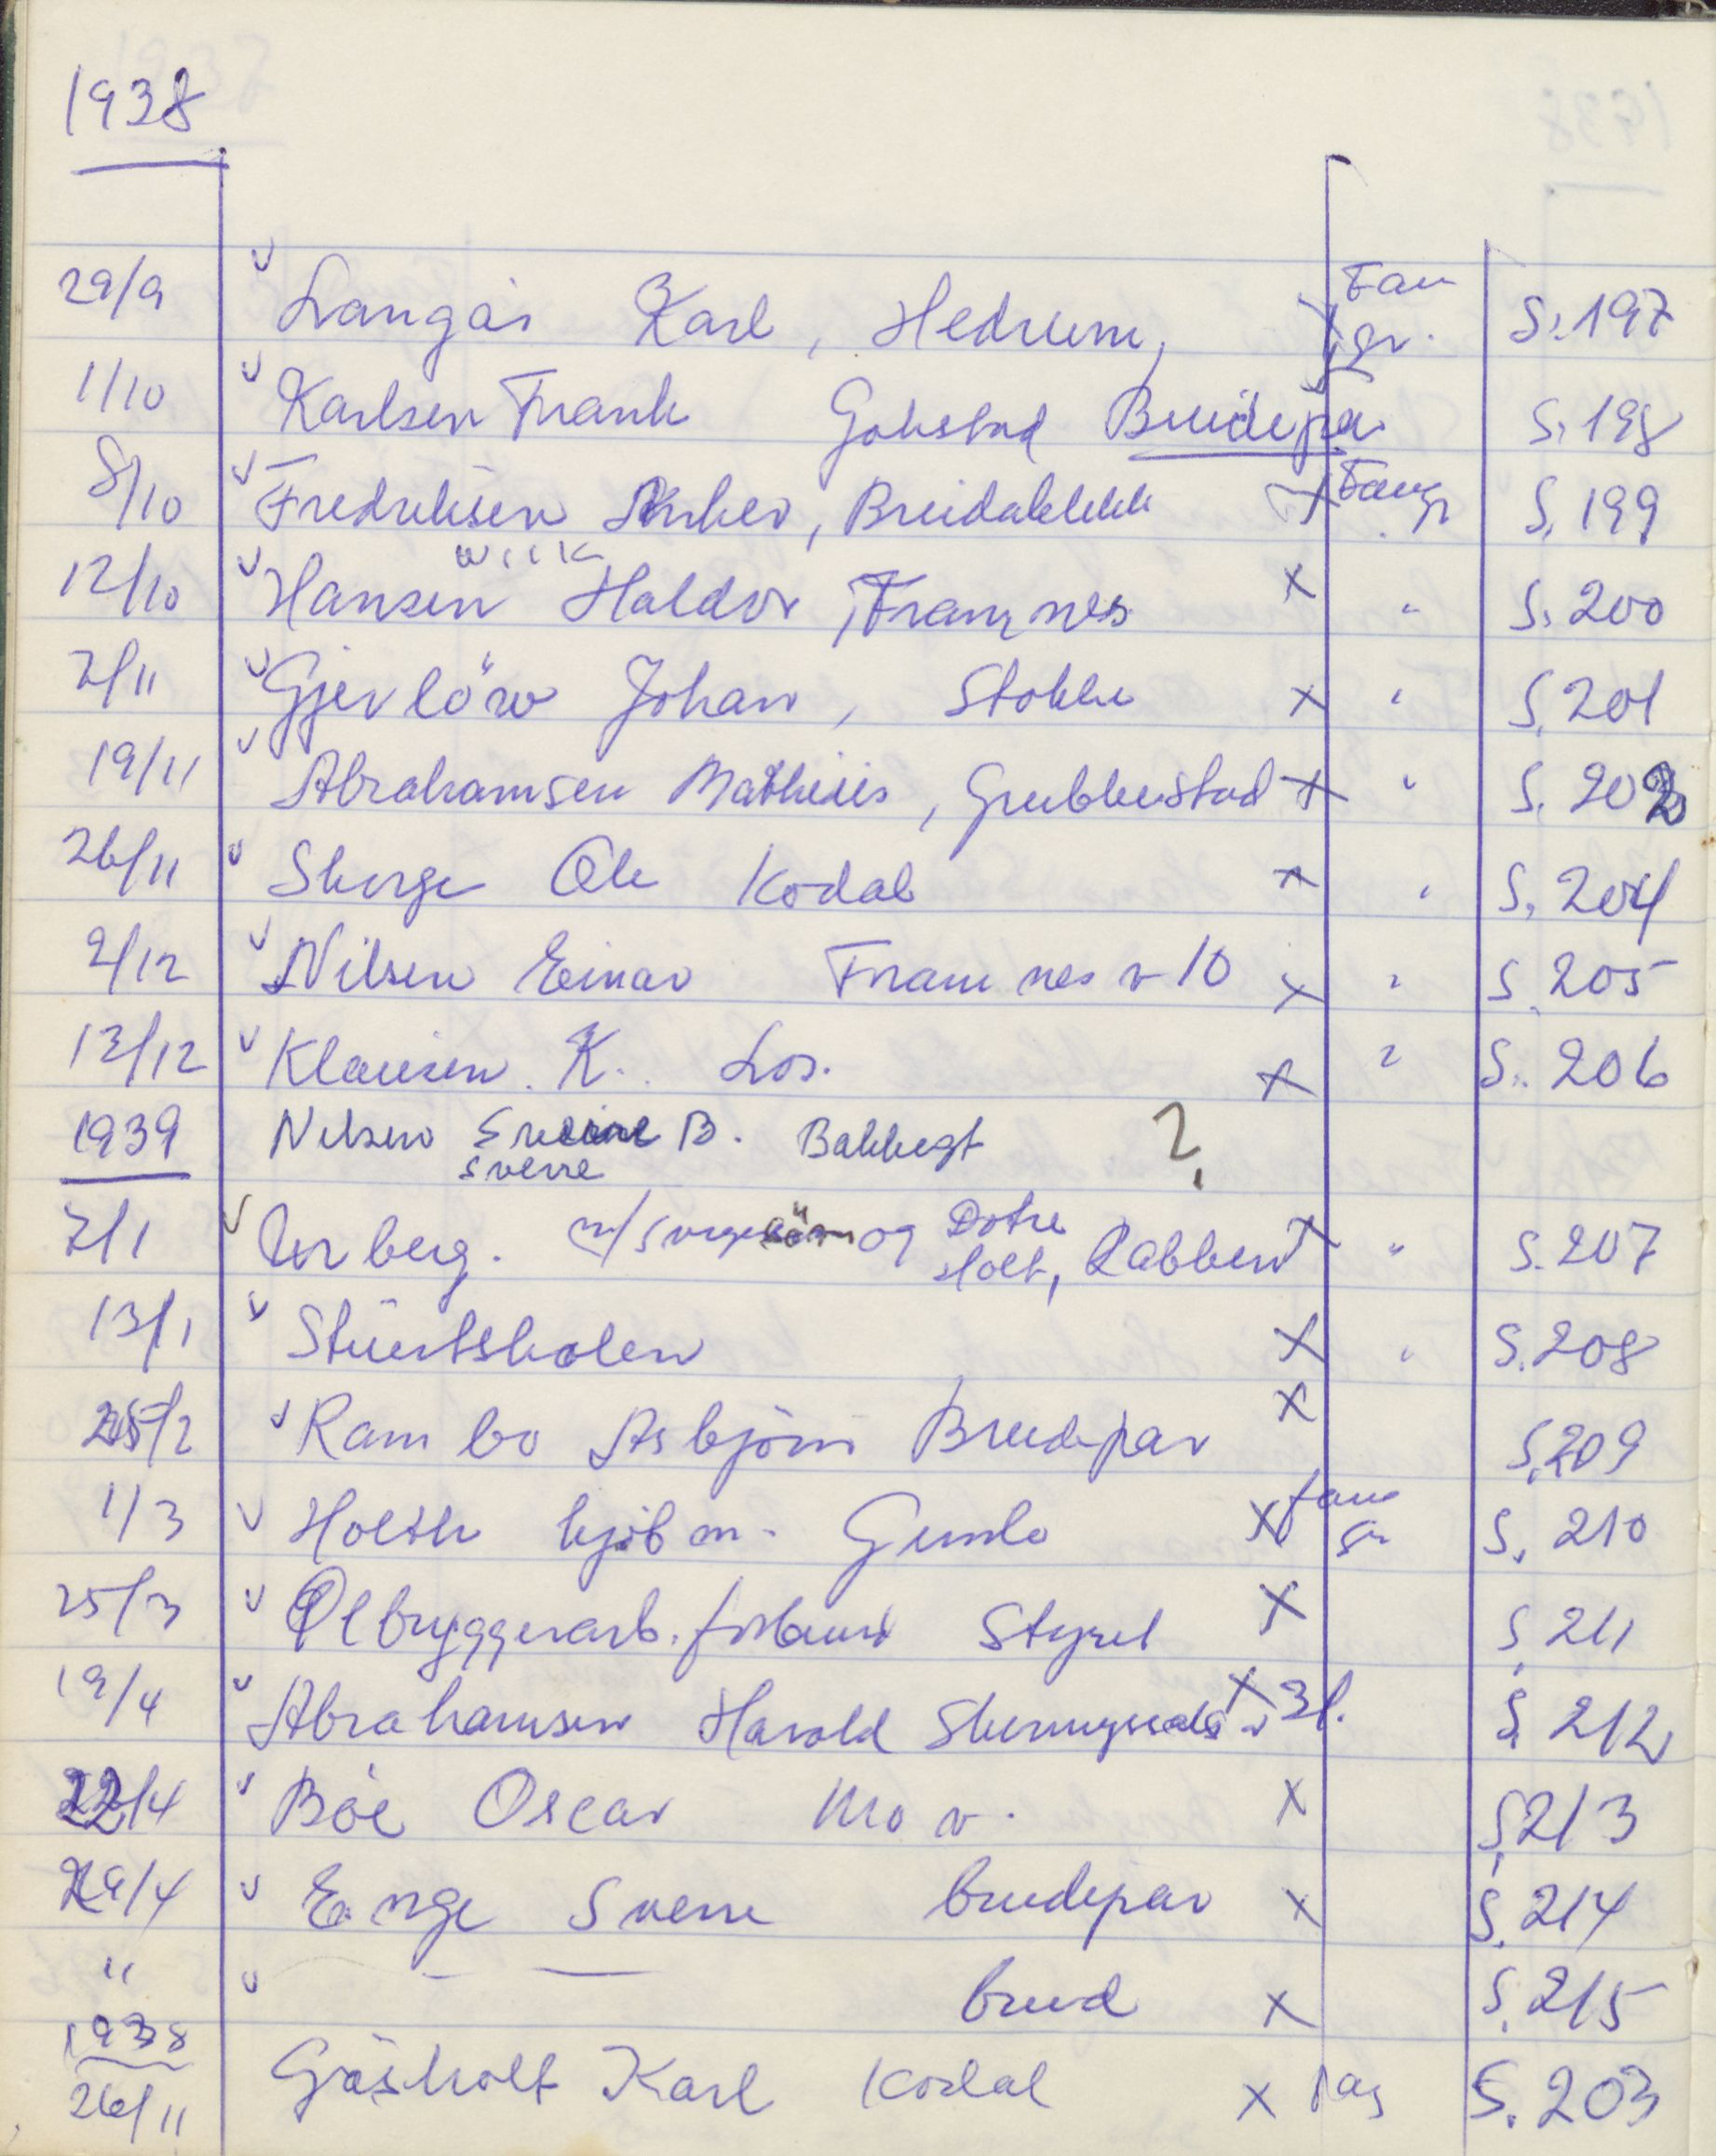 1938
29/9 Langås Karl, Hedrum, x Fam gr. S. 197
1/10 Karlsen Frank Gokstad Brudepar S. 198
8/10 Fredriksen Anker, Breidablikk x Famgr S. 199
Wiik
12/10 Hansen Haldor, Framnes x " S. 200
2/11 Gjerløw Johan, Stokke x " S. 201
19/11 Abrahamsen Mathias, Grubbestad x " S. 202
26/11 Skorge Ole Kodal x " S. 204
2/12 Nilsen Einar Framnes v 10 x " S. 205
13/12 Klausen K. Los. x " S. 206
1939 Nilsen B. Bakkegt ?
Sverre
7/1 Urberg. m/ og Døtre Holt, Rabben x " S. 207
13/1 x " S. 208
25/2 Rambo Asbjørn Brudepar x S. 209
1/3 Holth kjøbm. Gimle x fam gr S. 210
25/3 Ølbryggerarb. forbund Styret x S. 211
19/4 Abrahamsen Harold x 3l. S. 212
22/4 Bøe Oscar Mo v. x S. 213
29/4 Enge Sverre brudepar x S. 214
" — brud x S. 215
1938
26/11 Gåsholt Karl Kodal x S. 203